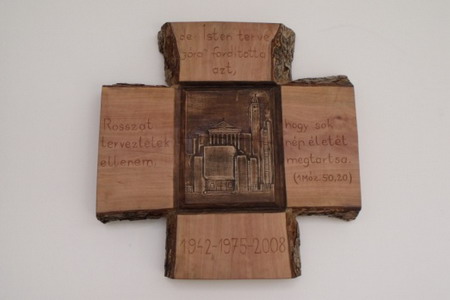 Rosszat
terveztetek
ellenem,
de Isten terve
jóra fordította
azt,
hogy sok
nép életét
megtartsa.
(1Móz. 50.20)
1942-1975-2008